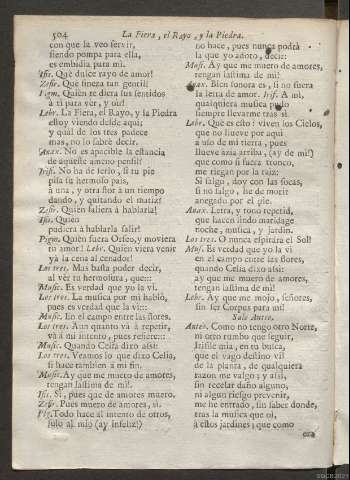 504 La Fiera, el Rayo, y la Piedra.
con que la veo servir,
siendo pompa para ella,
es embidia para mi.
Ifis. Què dulce rayo de amor!
Zefir. Què fineza tan gentil!
Pigm. Quièn te diera sus sentidos
à ti para vèr, y oir!
Lebr. La Fiera, el Rayo, y la Piedra
estoy viendo desde aqui;
y qual de los tres padece
mas, no lo sabrè decir.
Anax. No es apacible la estancia
de aqueste ameno pensil?
Irif. No ha de serlo, si tu pie
pisa su hermoso pais,
à una, y otra flor à un tiempo
dando, y quitando el matiz?
Zefir. Quièn saliera à hablarla!
Ifis. Quièn
pudiera à hablarla salir!
Pigm. Quièn fuera Orfeo, y moviera
tu amor! Lebr. Quièn viera venir
yà la cena al cenador!
Los tres. Mas basta poder decir,
al vèr tu hermosura, que:::
Music. Es verdad que yo la vi.
Los tres. La musica por mi hablò,
pues es verdad que la vi:::
Music. En el campo entre las flores.
Los tres. Aun quanto và à repetir,
và à mi intento, pues refiere:::
Music. Quando Celia dixo assi:
Los tres. Veamos lo que dixo Celia,
si hace tambien à mi fin.
Music. Ay que me muero de amores,
tengan lastima de mi!
Ifis. Si, pues que de amores muero.
Zefir. Pues muero de amores, si.
Pig. Todo hace al intento de otros,
solo al mio (ay infeliz!)
no hace, pues nunca podrà
la que yo adoro, decir:
Music. Ay que me muero de amores,
tengan lastima de mi!
Anax. Bien sonora es, si no fuera
la letra de amor. Irif. A mi,
qualquiera musica pudo
siempre llevarme tras si.
Lebr. Què es esto! viven los Cielos,
que no llueve por aqui
à uso de mi tierra, pues
llueve àzia arriba, (ay de mi!)
que como si fuera tronco,
me riegan por la raiz:
Si salgo, doy con las focas,
si no salgo, he de morir
anegado por el pie.
Anax. Letra, y tono repetid,
que hacen lindo maridage
noche, musica, y jardin.
Los tres. O nunca espirara el Sol!
Mus. Es verdad que yo la vi
en el campo entre las flores,
quando Celia dixo assi:
ay que me muero de amores,
tengan lastima de mi!
Lebr. Ay que me mojo, señores,
sin ser Corpus para mi!
Sale Anteo.
Anteo. Como no tengo otro Norte,
ni otro rumbo que seguir,
Irifile mia, en tu busca,
que el vago destino vil
de la planta, de qualquiera
razon me valgo; y assi,
sin recelar daño alguno,
ni algun riesgo prevenir,
me he entrado, sin saber donde,
tras la musica que oì,
à estos jardines; que como
era